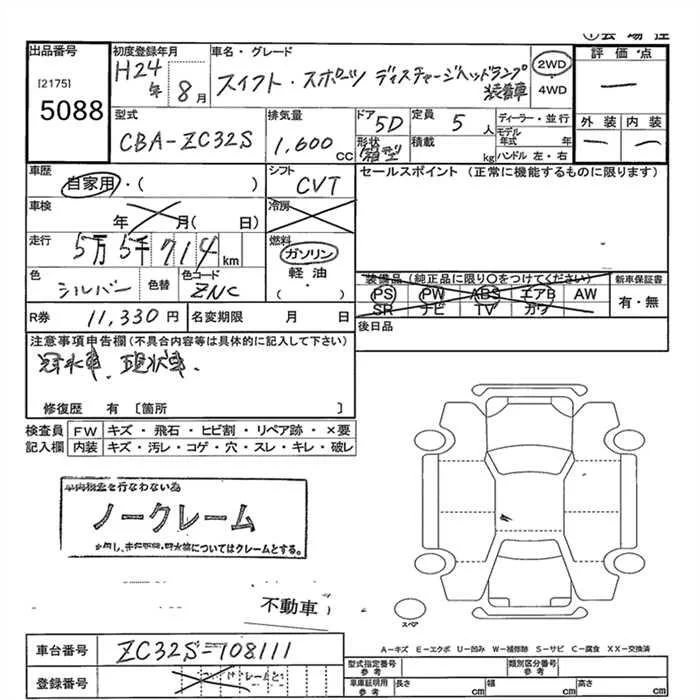 出品番号
[2175]
5088
初度登録年月
H24年 8月
車名・グレード
スイフト・スポーツ ディスチャージヘッドランプ
装着車
2WD
4WD
評価点
ー
外装 内装
ー ー
型式
CBA-ZC32S
排気量
1,600 cc
ドア 5D
形状 箱型
定員 5 人
積載 kg
ディーラー・並行
モデル年式 年
ハンドル 左・右
車歴
自家用・( )
シフト
CVT
セールスポイント (正常に機能するものに限ります)
車検
年 月( 日)
冷房
走行
5万5千714 km
燃料
ガソリン
軽油
( )
色
シルバー
色替
色コード
ZNC
装備品 (純正品に限り○をつけてください)
PS PW ABS エアB AW
SR ナビ TV カワ
新車保証書
有・無
R券 11,330円
名変期限 月 日
後日品
注意事項申告欄(不具合内容等は具体的に記入して下さい)
冠水車、現状車、
修復歴 有 〔箇所 〕
検査員
記入欄
FW キズ・飛石・ヒビ割・リペア跡・×要
内装 キズ・汚レ・コゲ・穴・スレ・キレ・破レ
車両検査を行なわない為
ノークレーム
についてはクレームとする。
不動車
スペア
A-キズ E-エクボ U-凹み W-補修跡 S-サビ C-腐食 XX-交換済
車台番号
ZC32S-108111
登録番号
型式指定番号
参考
類別区分番号
参考
車庫証明用
参考
長さ cm
幅 cm
高さ cm